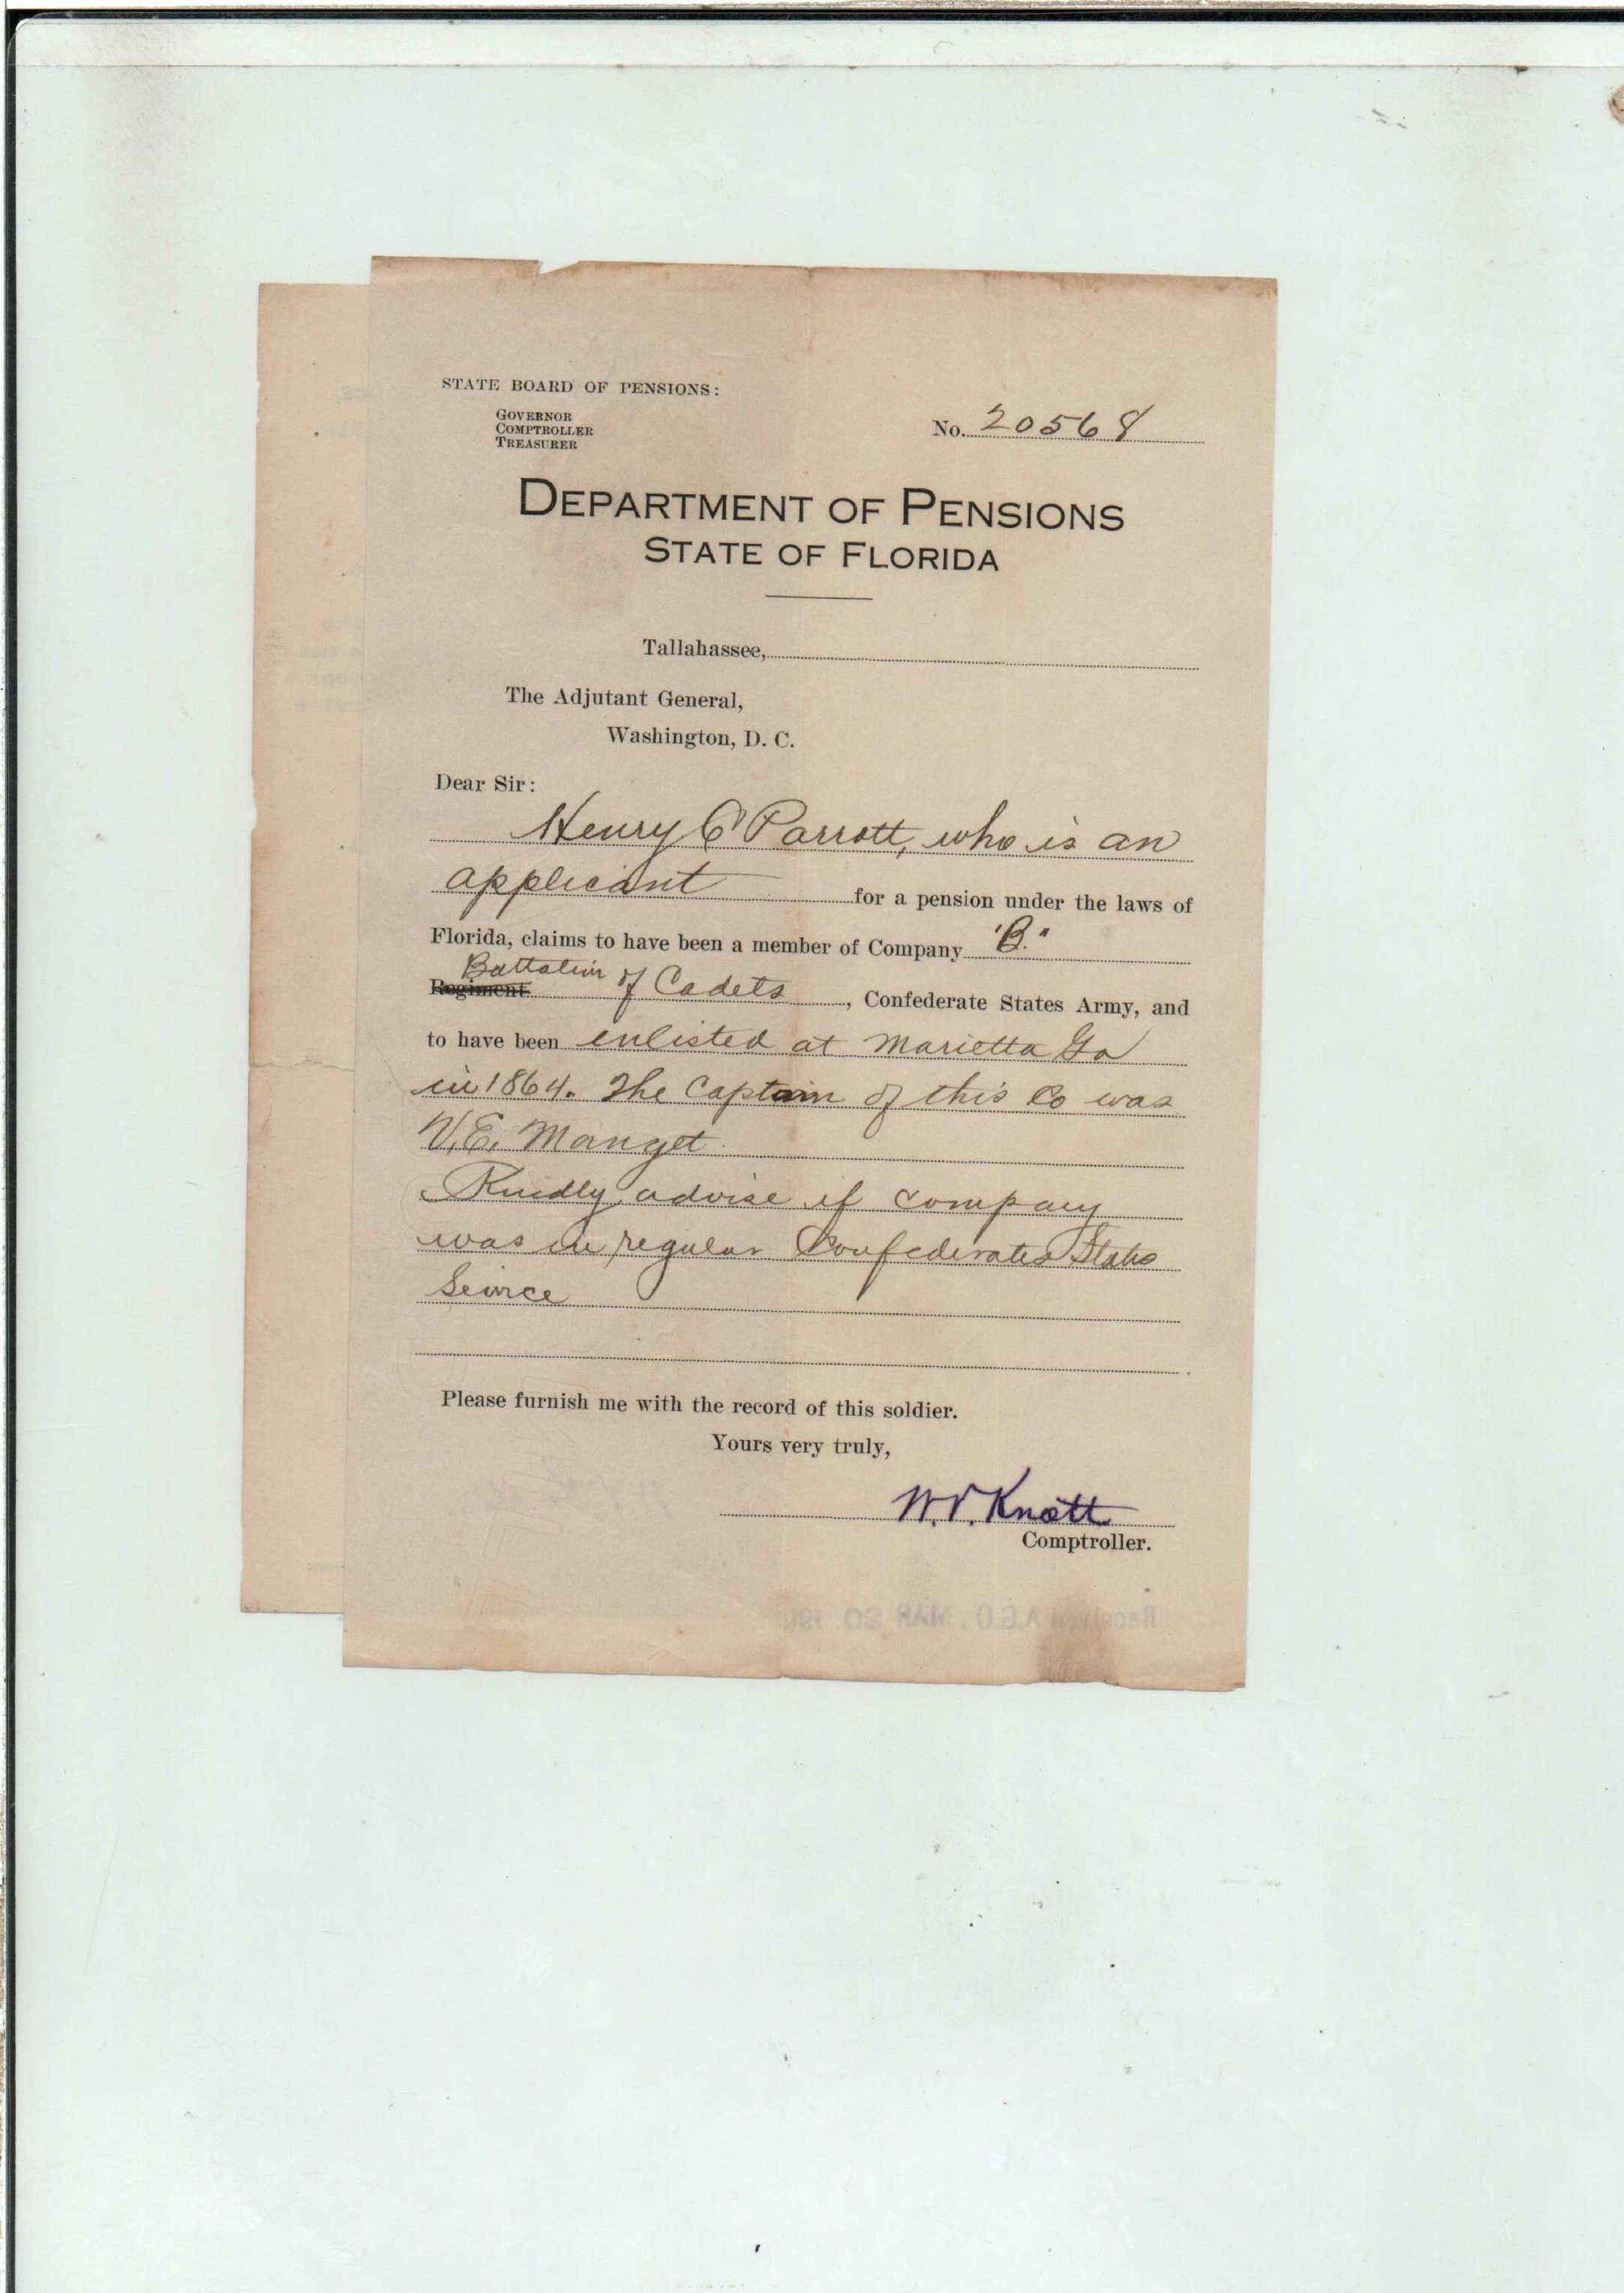 STATE BOARD OF PENSIONS:
GOVERNOR
COMPTROLLER
TREASURER
No. 20568
DEPARTMENT OF PENSIONS
STATE OF FLORIDA
Tallahassee,
The Adjutant General,
Washington, D. C.
Dear Sir:
Henry C Parrott, who is an
applicant for a pension under the laws of
Florida, claims to have been a member of Company "B."
Battalion
Regiment of Cadets, Confederate States Army, and
to have been enlisted at Marietta Ga
in 1864. The Captain of this Co was
V. E. Manget
Kindly advise if company
was in regular Confederates States
Service
Please furnish me with the record of this soldier.
Yours very truly,
W. V. Knott
Comptroller.
Received A.G.O. MAR 20